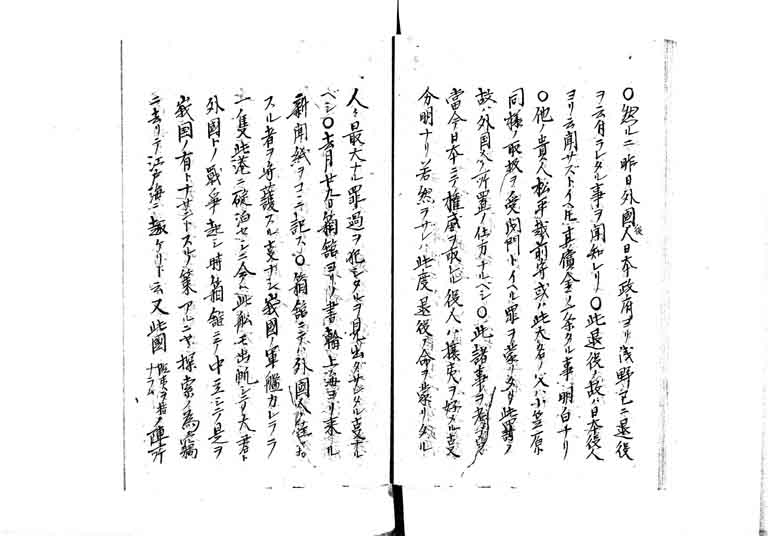 〇然ルニ昨日外國人日本政府ヨリ浅野已ニ退役
ヲ云有ラレタル事ヲ聞知レリ〇此退役ノ故ハ日本役人
ヨリ云聞サズトイヘ𪜈真償金ノ条タル事明白ナリ
〇他ノ貴人松平越前守或ハ此大名ノ父小笠原ト
同様ノ取扱ヲ受閉門トイヘル罪ヲ蒙リタリ此罪ノ
故ハ外国人ノ所置ノ仕方ナルベシ〇此諸事ヲ
當今日本ニテ権威ヲ取レル役人ハ攘夷ヲ好メル
分明ナリ若然ヲサレハ此度退役ノ命ヲ蒙リタル
人々最大ナル罪過ヲ犯シタルヲ見出ダサシメル
ベシ〇去月廿九日箱舘ヨリノ書翰上海ヨリ来ル
新聞紙ヲココニ記ス〇箱舘ニテハ外國人ノ住
スル者ヲ守護スル 我國ノ軍艦カレララ
一隻此港ニ碇泊セシニ今ハ此舩モ出帆シテリ大君ト
外國トノ戰争起シ時箱舘ニテノ中立シテ是ヲ
我国ノ有トナサントスルノ策アルニヤ探索ノ為
ニ去リテ江戸海ニ趣ケリト云又此國ノ陣所
ナラム